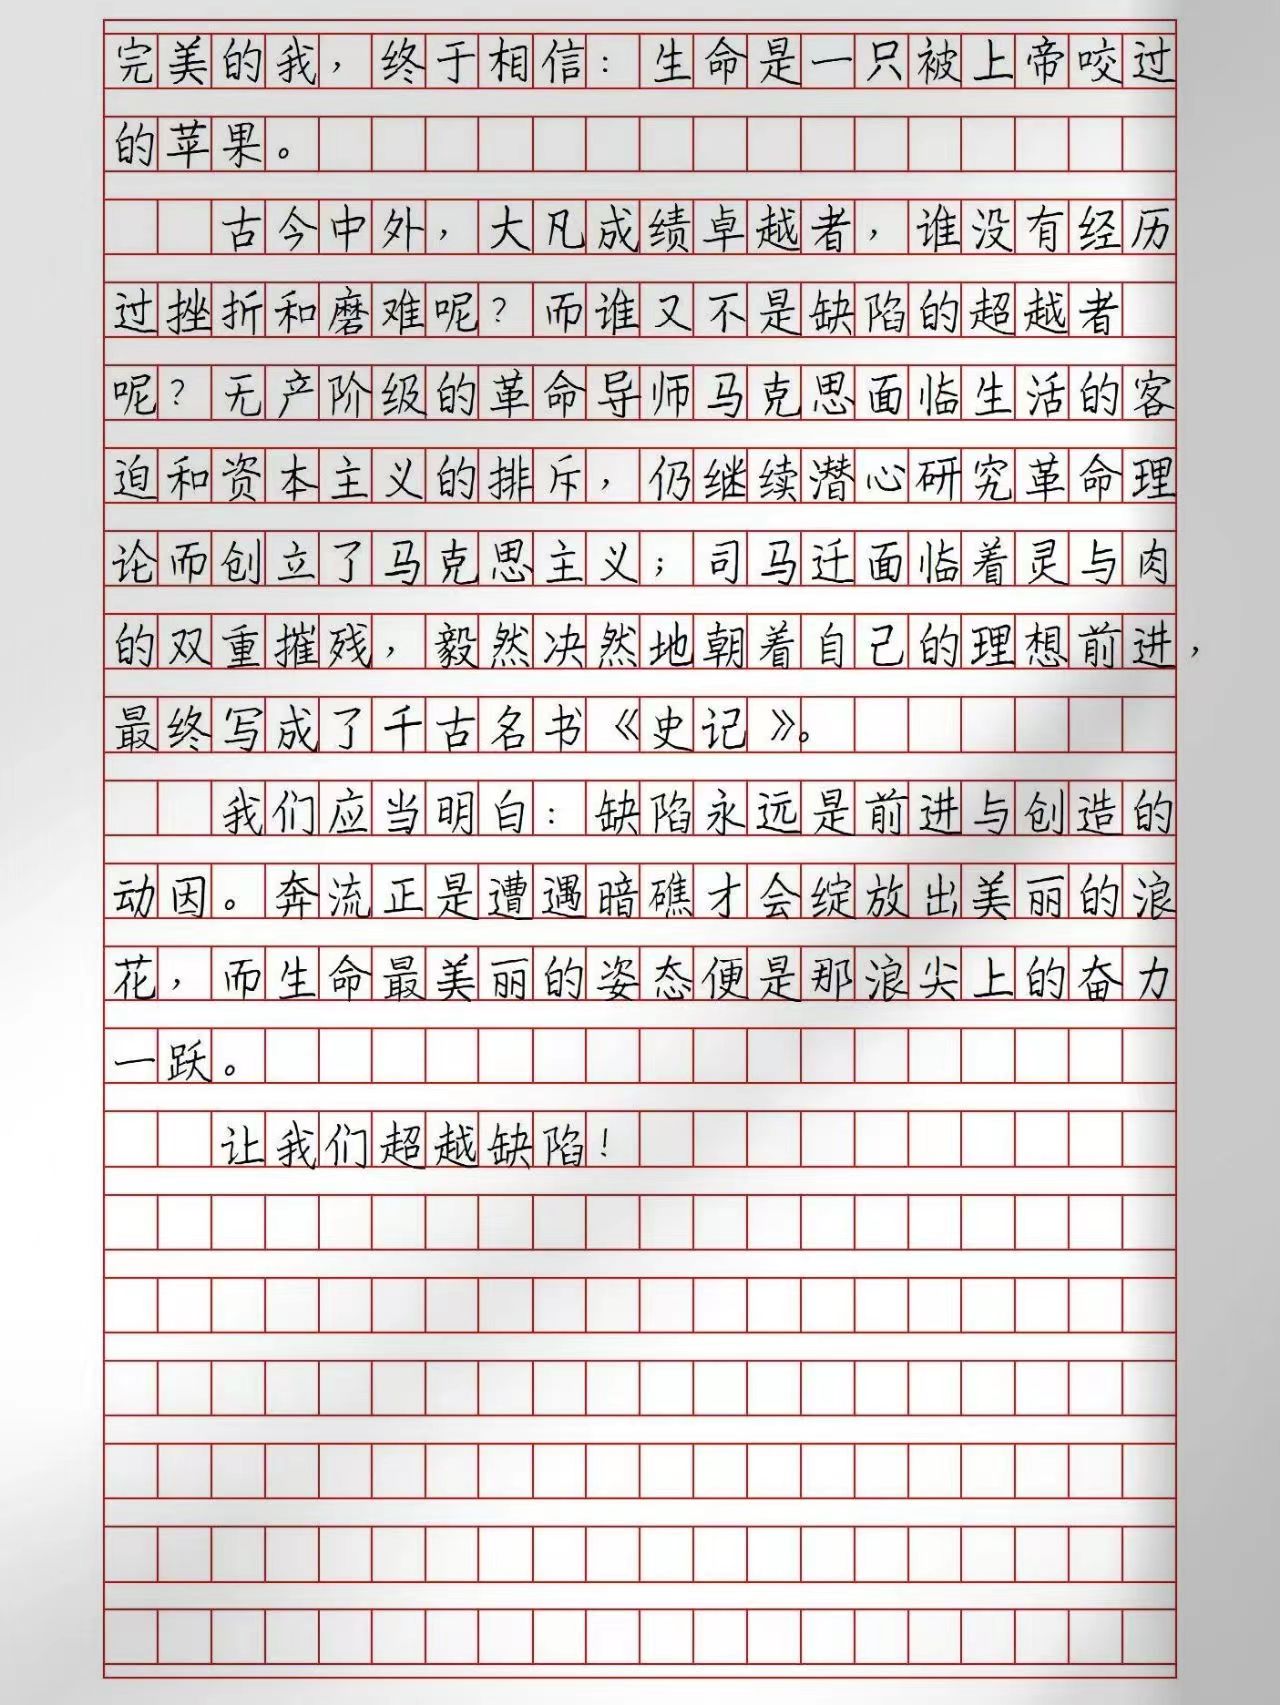 完美的我，终于相信：生命是一只被上帝咬过
的苹果。
古今中外，大凡成绩卓越者，谁没有经历
过挫折和磨难呢？而谁又不是缺陷的超越者
呢？无产阶级的革命导师马克思面临生活的客
迫和资本主义的排斥，仍继续潜心研究革命理
论而创立了马克思主义；司马迁面临着灵与肉
的双重摧残，毅然决然地朝着自己的理想前进，
最终写成了千古名书《史记》。
我们应当明白：缺陷永远是前进与创造的
动因。奔流正是遭遇暗礁才会绽放出美丽的浪
花，而生命最美丽的姿态便是那浪尖上的奋力
一跃。
让我们超越缺陷！